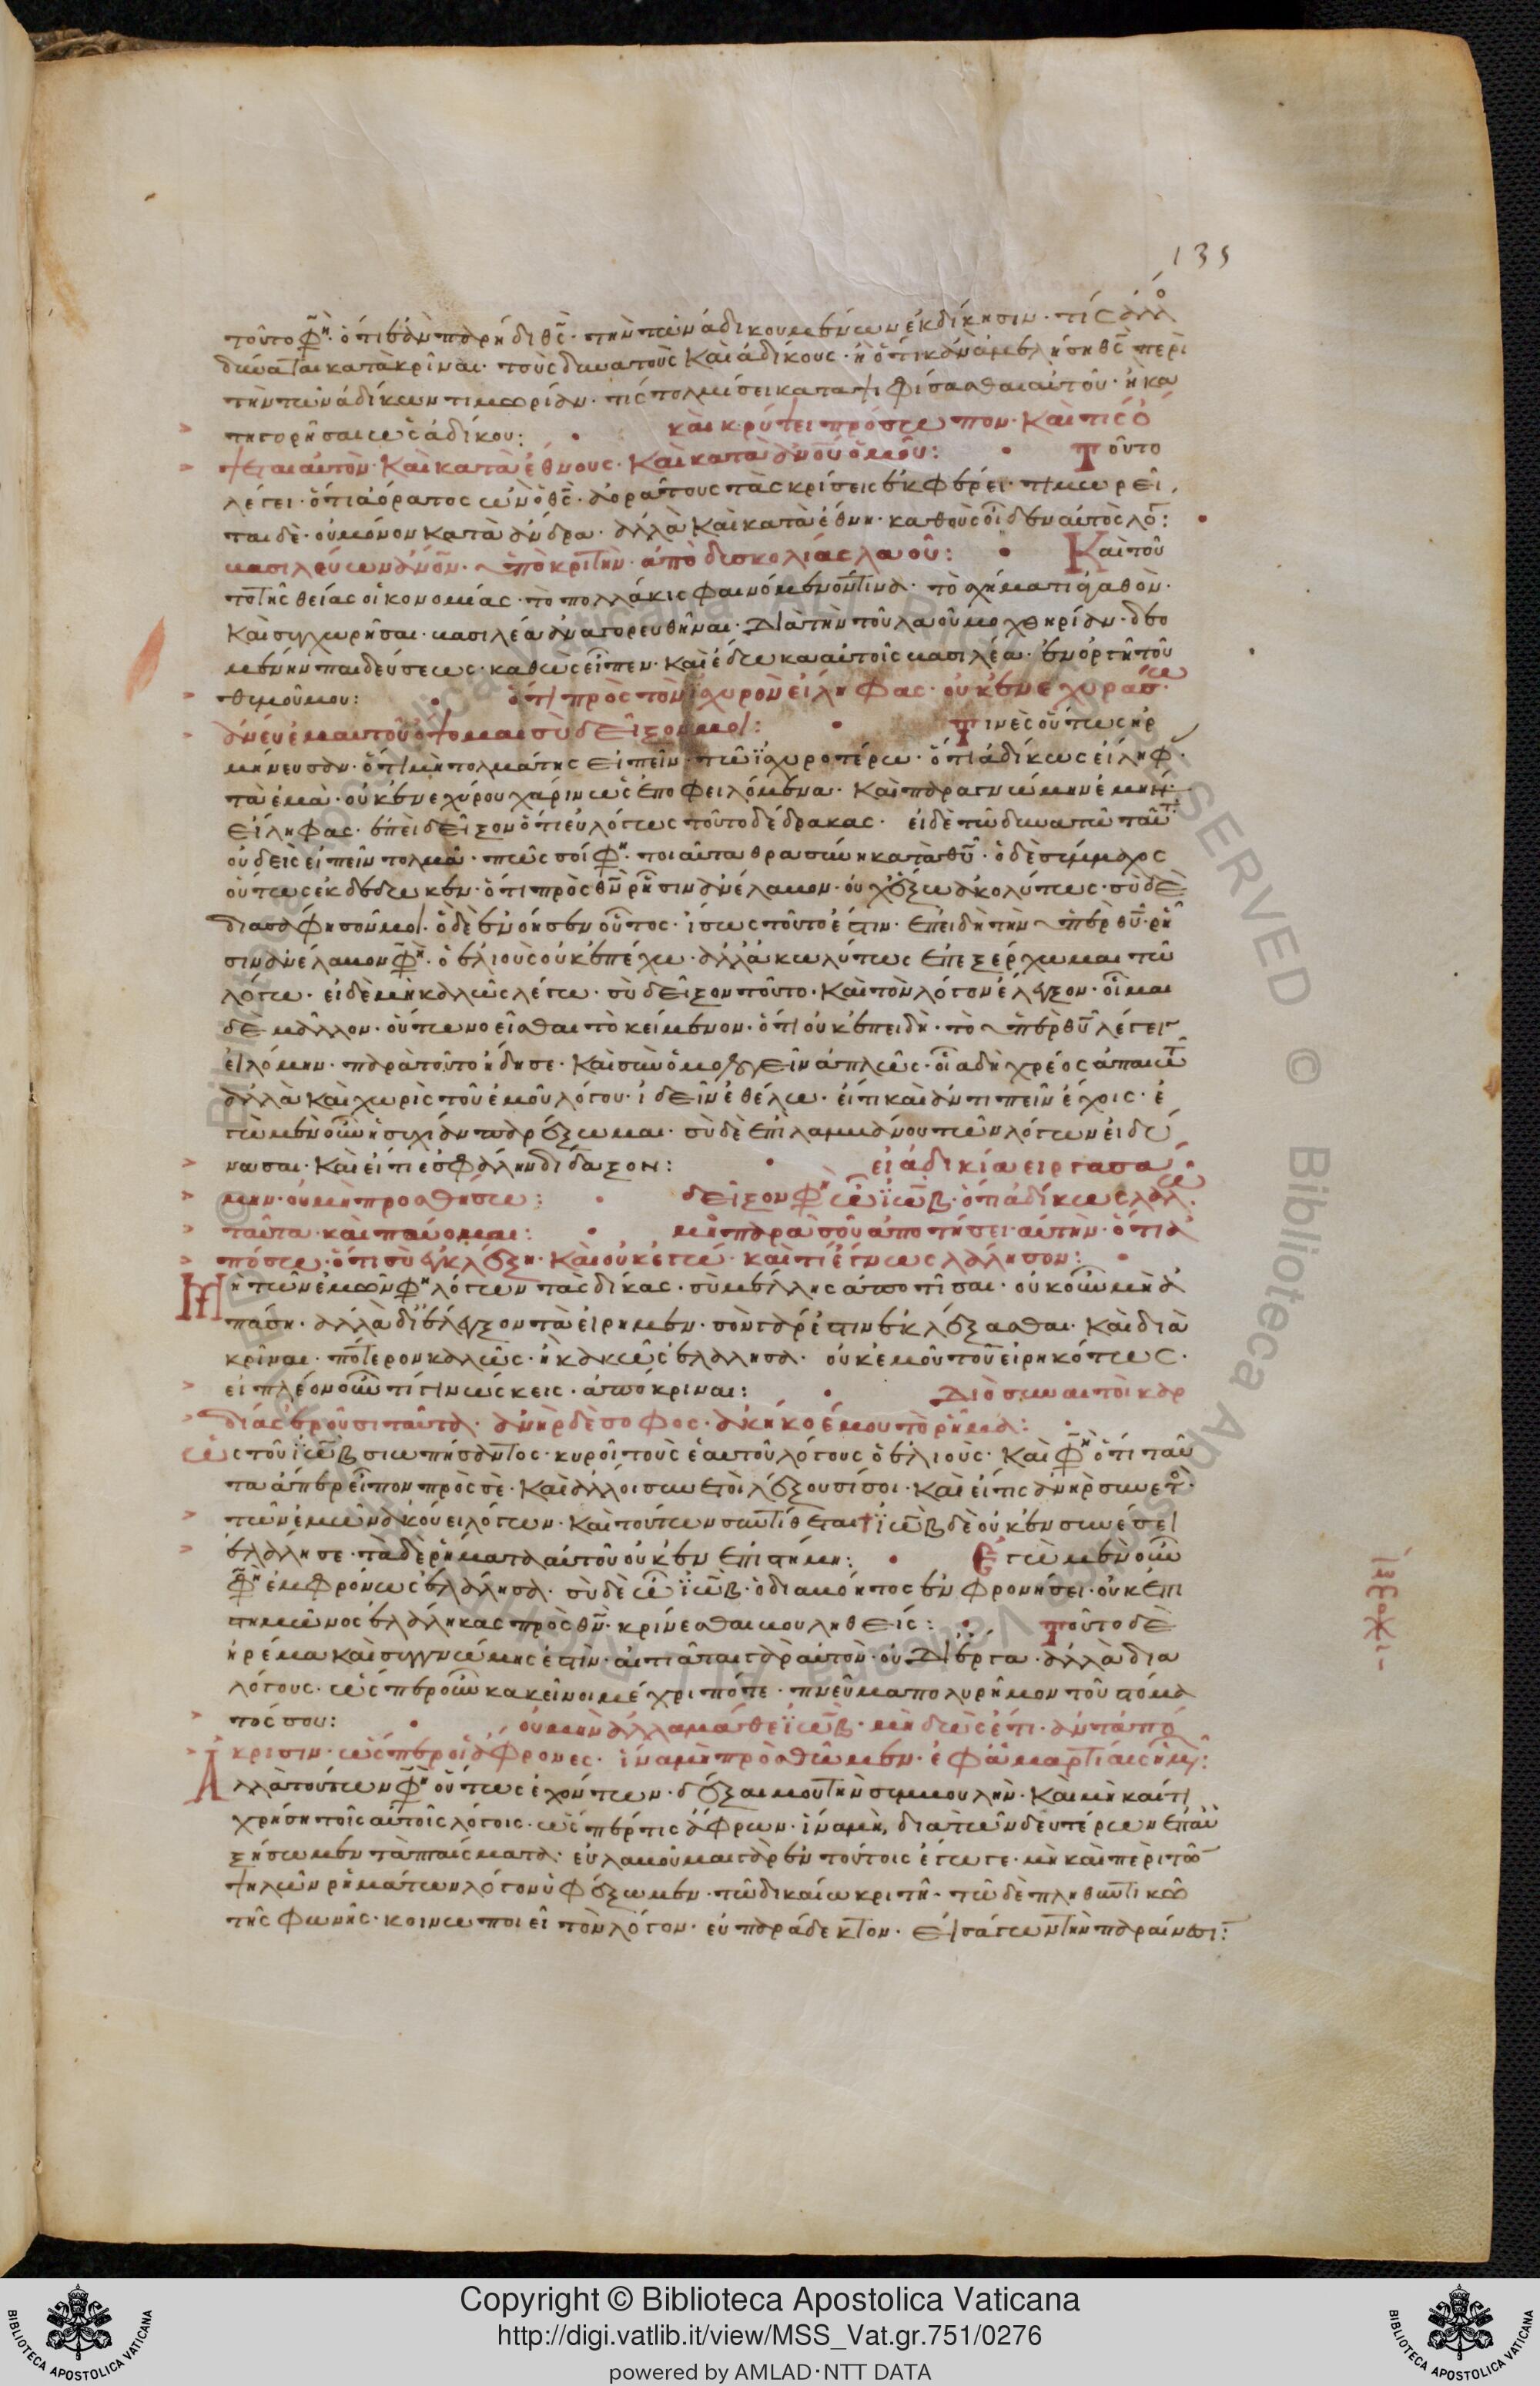 135
τοῦτο φη· ὅτι ἐὰν παρήδι θς· τὴν τῶν ἀδικουμένων ἐκδίκησιν· τίς ἄλλο
δύναται κατακρῖναι· τοὺς δυνατοὺς καὶ ἀδίκους· ἢ ὅτι κἂν ἀμελήση θς περὶ
τὴν τῶν ἀδίκων τιμωρίαν· τίς τολμίσει καταψιφίσασθαι αὐτοῦ· ἢ κα
τηγορῆσαι ὡς ἀδίκου: καὶ κρύψει πρόσωπον· καὶ τίς ὄ
ψεται αὐτὸν· καὶ κατὰ ἔθνους· καὶ κατὰ ἀνου ὁμοῦ: Τοῦτο
λέγει· ὅτι ἀόρατος ὢν ὁ θς· ἀοράτους τὰς κρίσεις ἐκφέρει· τιμωρεῖ
ται δὲ· οὐ μόνον κατὰ ἄνδρα· ἀλλὰ καὶ κατὰ ἔθνη· καθ οὓς οἶδεν αὐτὸς λό:
βασιλεύων ἀνον· ὑποκριτὴν· ἀπὸ δισκολίας λαοῦ: Καὶ τοῦ
το τῆς θείας οἰκονομίας· τὸ πολλάκις φαινόμενόν τινα· τὸ σχήματι ἀγαθὸν·
καὶ συγχωρῆσαι· βασιλέα ἀναγορευθῆναι· διὰ τὴν τοῦ λαοῦ μοχθηρίαν· δεο
μένην παιδεύσεως· καθὼς εἶπεν· καὶ ἔδωκα αὐτοῖς βασιλέα· ἐν ὀργῆ τοῦ
θυμοῦ μου: ὅτι πρὸς τὸν ἰσχυρὸν εἴληφας· οὐκ ἐνεχυράσω·
ἄνευ ἐμαυτοῦ ὄψομαι σὺ δεῖξον μοι: Τινὲς οὕτως ἡρ
μήνευσαν· ὅτι μὴ τολμάτης εἰπεῖν· τῶ ἰσχυροτέρω· ὅτι ἀδίκως εἴληφ·
τὰ ἐμὰ· οὐκ ἐνεχύρου χάριν ὡς ἐποφειλόμενα· καὶ παρὰ γνώμην ἐμὴν
εἴληφας· ἐπεὶ δεῖξον ὅτι εὐλόγως τοῦτο δέδρακας· εἰ δὲ τῶ δυνατῶ ταῦτ
οὐδεὶς εἰπεῖν τολμᾶ· πῶς σοί φη· τοιαῦτα θρασύνη κατὰ θυ· ὁ δὲ σύμμαχος
οὕτως ἐκδέδωκεν· ὅτι πρὸς θν ῥῆσιν ἀνέλαβον· οὐχ ἕξω ἀκολύτως· σὺ δὲ
διασάφησόν μοι· ὁ δὲ ἐνόησεν οὗτος· ἴσως τοῦτο ἐστιν· ἐπειδὴ τὴν ὑπὲρ θυ· ῥῆ
σιν ἀνέλαβον φη· ὁ ἐλιοὺς οὐκ ἐπέχω· ἀλλ ἀκωλύτως ἐπεξέρχωμαι τῶ
λόγω· εἰ δὲ μὴ καλῶς λέγω· σὺ δεῖξον τοῦτο· καὶ τὸν λόγον ἔλεγξον· οἶμαι
δὲ μᾶλλον· οὕτω νοεῖσθαι τὸ κείμενον· ὅτι οὐκ ἐπειδὴ· τὸ ὑπὲρ θυ λέγειν
εἱλόμην· παρὰ τοῦτο ἤδησε· καὶ συνομολογεῖν ἁπλῶς· οἷα δὴ χρέος ἀπαιτῶ
ἀλλὰ καὶ χωρὶς τοῦ ἐμοῦ λόγου· ἰδεῖν ἐθέλω· εἴ τι καὶ ἀντιπεῖν ἔχοις· ἐ
γὼ μὲν οὖν ἡσυχίαν παρέξωμαι· σὺ δὲ ἐπιλαμβάνου τῶν λόγων εἰ δύ
νασαι· καὶ εἴ τι ἐσφάλην δίδαξον: εἰ ἀδικία εἰργασά
μην· οὐ μὴ προσθήσω: δεῖξον φη ὦ ἰώβ· ὅτι ἀδίκως λαλῶ·
ταῦτα· καὶ παύομαι: μὴ παρὰ σοῦ ἀποτήσει· αὐτὴν· ὅτι ἀ
πόσω· ὅτι σὺ ἐκλέξη· καὶ οὐκ ἐγώ· καὶ τί ἔγνως λάλησον:
Μὴ τῶν ἐμῶν φη λόγων τὰς δίκας· σὺ μέλλης ἀποτῖσαι· οὐκοῦν μὴ ἀ
πάση· ἀλλὰ διέλεγξον τὰ εἰρημεν· σὸν γὰρ ἐστιν ἐκλέξασθαι· καὶ δια
κρῖναι· πότερον καλῶς· ἢ κακῶς ἐλάλησα· οὐκ ἐμοῦ τοῦ εἰρηκότως·
εἰ πλέον οὖν τί γινώσκεις· ἀπόκριναι: Διὸ συναιτοὶ καρ
δίας ἐροῦσι ταῦτα· ἀνὴρ δὲ σοφος· ἀκήκοέ μου τὸ ῥῆμα:
ὡς τοῦ ἰὼβ σιωπήσαντος· κυροῖ τοὺς ἑαυτοῦ λόγους ὁ ἐλιοὺς· καὶ φη ὅτι ταῦ
τα ἅπερ εἶπον πρὸς σὲ· καὶ ἄλλοι συνετοὶ λέξουσί σοι· καὶ εἴ τις ἀνὴρ συνετὸ·
τῶν ἐμῶν ἀκούει λόγων· καὶ τούτων συντίθεται ἰὼβ δὲ οὐκ ἐν συνέσει
ἐλάλησε· τὰ δὲ ῥήματα αὐτοῦ οὐκ ἐν ἐπιστήμη: Ἐγὼ μὲν οὖν
φη ἐμφρόνως ἐλάλησα· σὺ δὲ ὦ ἰώβ· ὁ διαβόητος ἐν φρονήσει· οὐκ ἐπι
στημῶνος ἐλάληκας πρὸς θν· κρίνεσθαι βουληθείς: Τοῦτο δὲ
ἠρέμα καὶ συγγνώμης ἐστὶν· αἰτιᾶται γὰρ αὐτὸν· οὐ δι ἔργα· ἀλλὰ δια
λόγους· ὥσπερ οὖν κακεῖνοι μέχρι πότε· πνεῦμα πολυρῆμον τοῦ στόμα
τός σου: οὐ μὴν ἀλλα μάθε ἰώβ· μὴ δῶς ἔτι· ἀνταπό
κρισιν· ὥσπερ οἱ ἄφρονες· ἵνα μὴ προσθῶμεν· ἐφ ἁμαρτίαις ἡμῶν:
Ἀλλὰ τούτων φη οὕτως ἐχόντων· δέξαι μου τὴν συμβουλὴν· καὶ μὴ καίτι
χρήση τοῖς αὐτοῖς λόγοις· ὥσπερ τις ἄφρων· ἵνα μὴ, διὰ τῶν δευτέρων ἐπαυ
ξήσωμεν τὰ πταίσματα· εὐλαβοῦμαι γὰρ ἐν τούτοις ἔγωγε· μὴ καὶ περὶ τῶν
ψηλῶν ῥημάτων λόγον ὑφέξωμεν· τῶ δικαίω κριτῆ· τῶ δὲ πληθυντικῶ
τῆς φωνῆς· κοινωποιεῖ τὸν λόγον· εὐπαράδεκτον· εἰσάγων τὴν παραίνεσι:
Copyright © Biblioteca Apostolica Vaticana
http://digi.vatlib.it/view/MSS_Vat.gr.751/0276
powered by AMLAD·NTT DATA